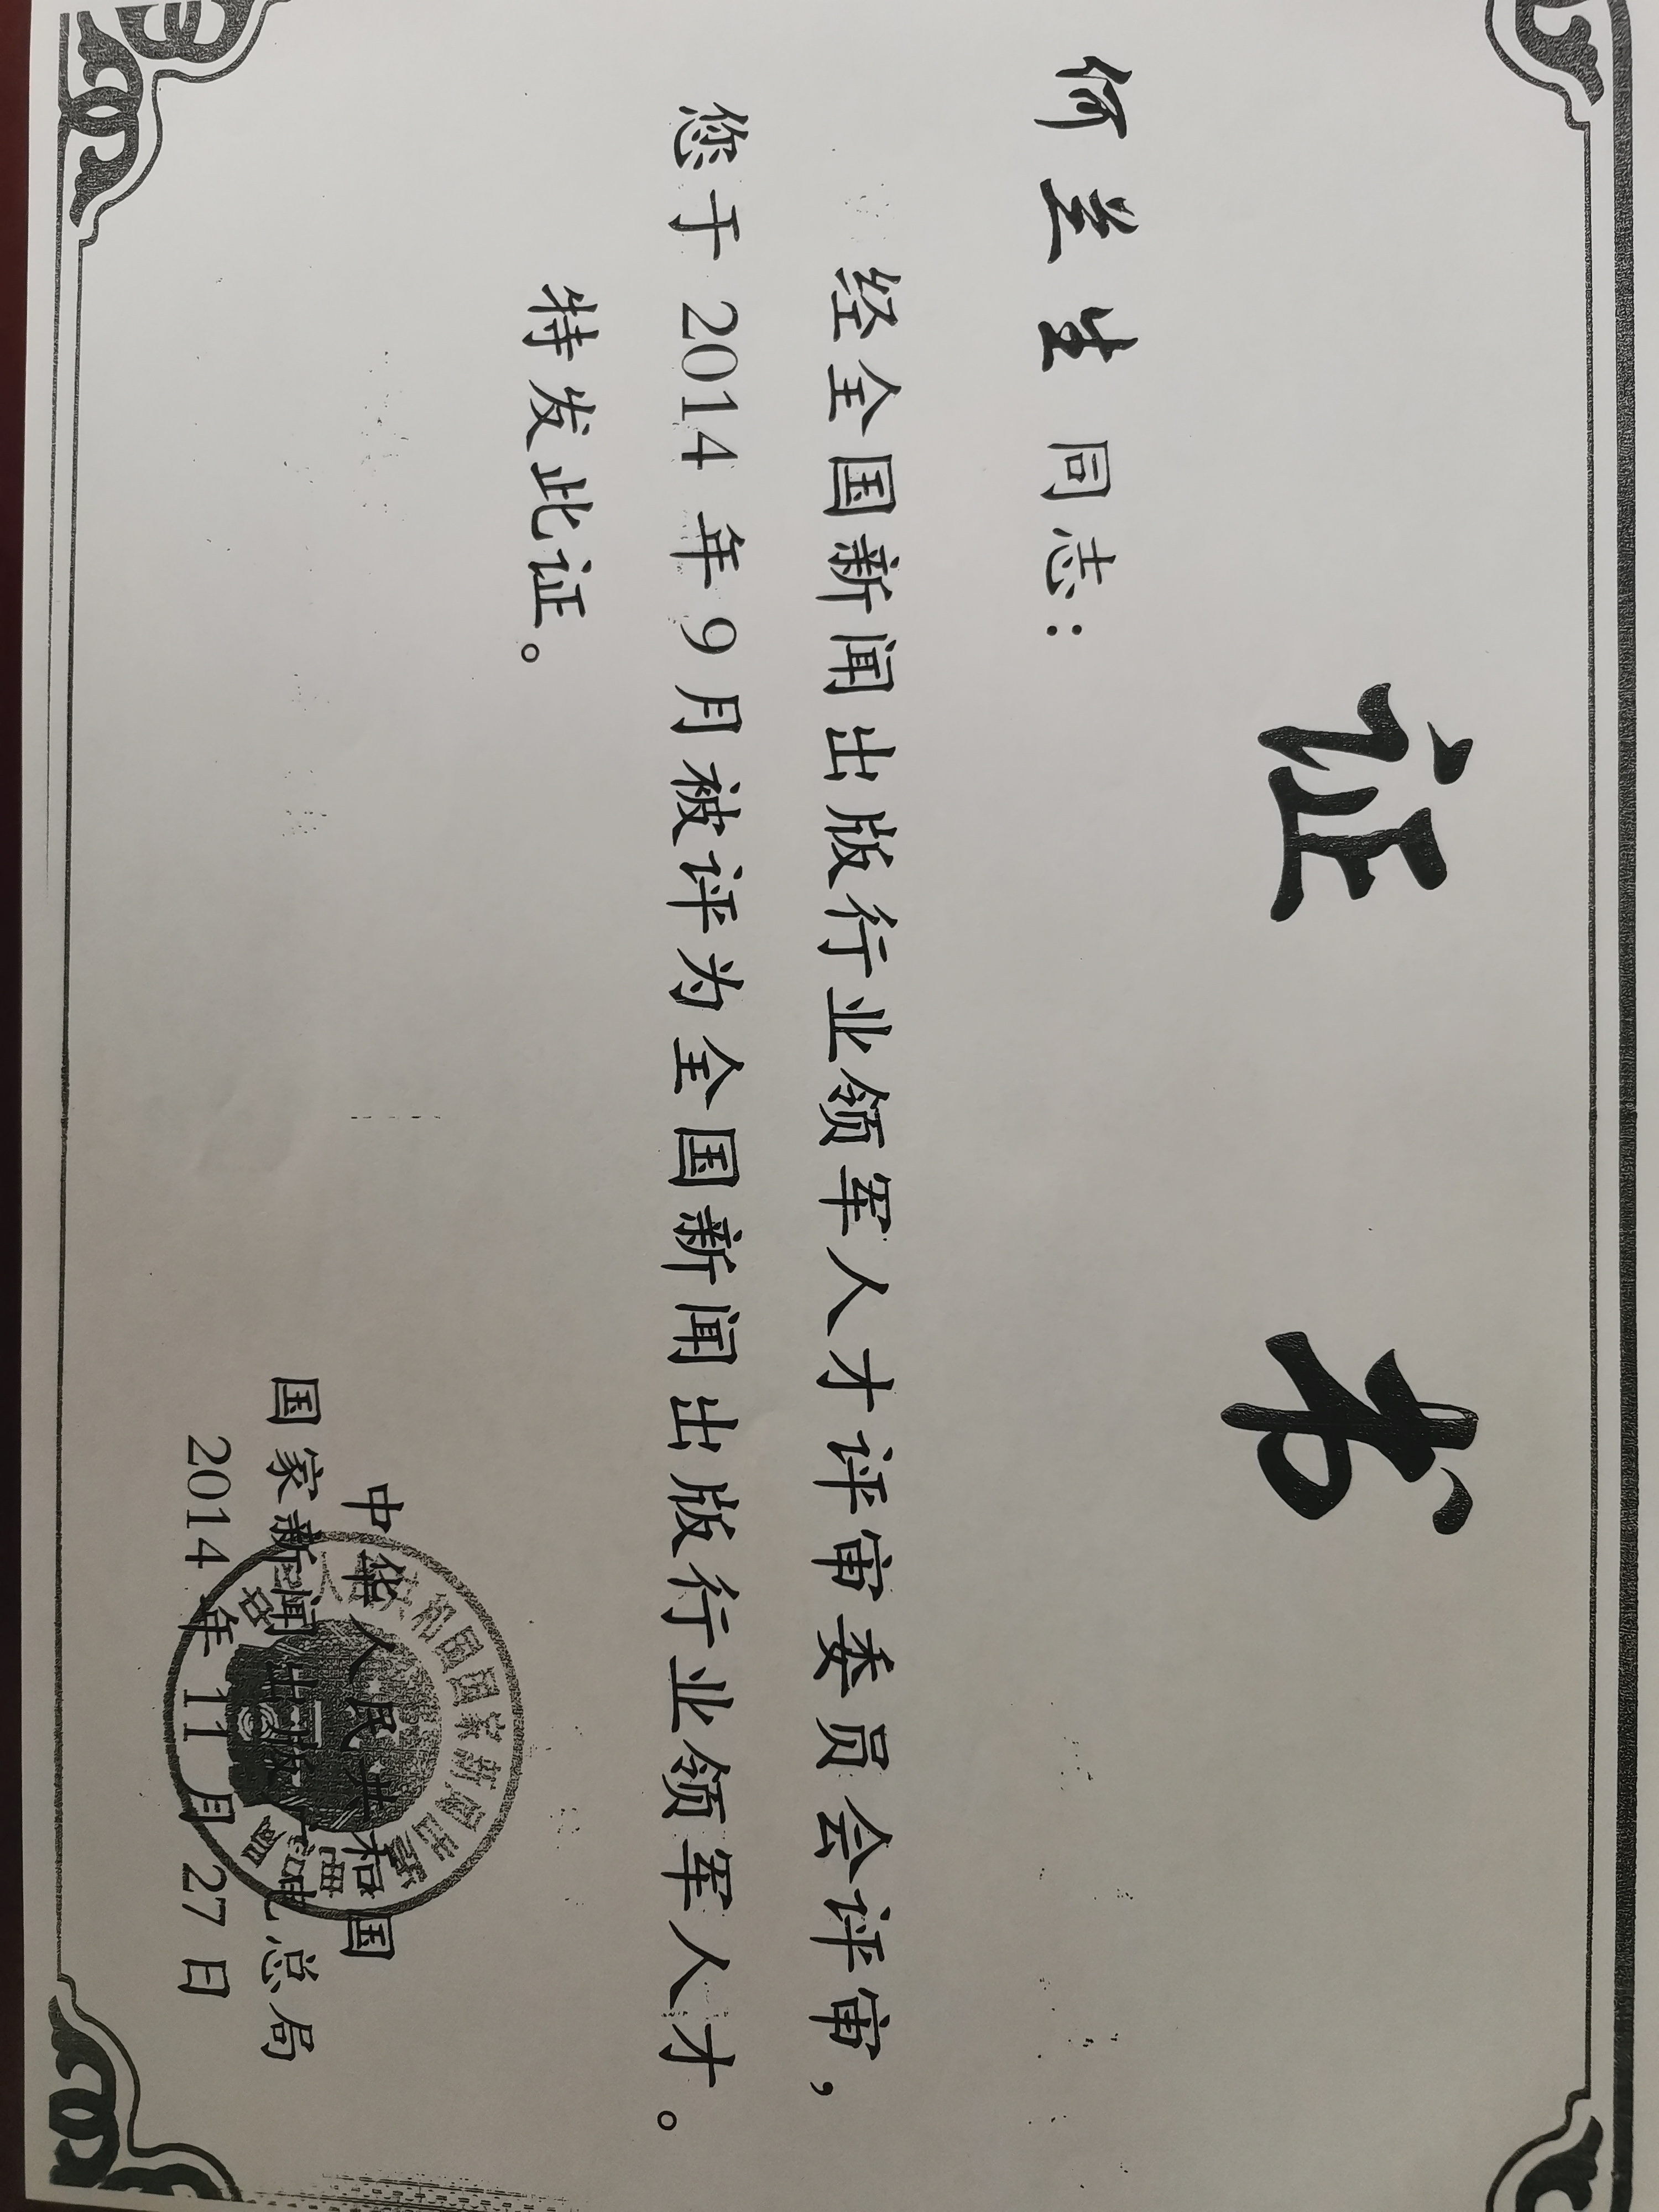 证 书
何兰生同志：
经全国新闻出版行业领军人才评审委员会评审，
您于2014年9月被评为全国新闻出版行业领军人才。
特发此证。
中华人民共和国
国家新闻出版广电总局
2014年11月27日